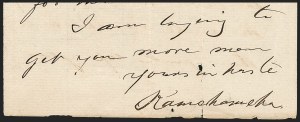 I am trying to
get you more men
Yours in haste
Kamehameha